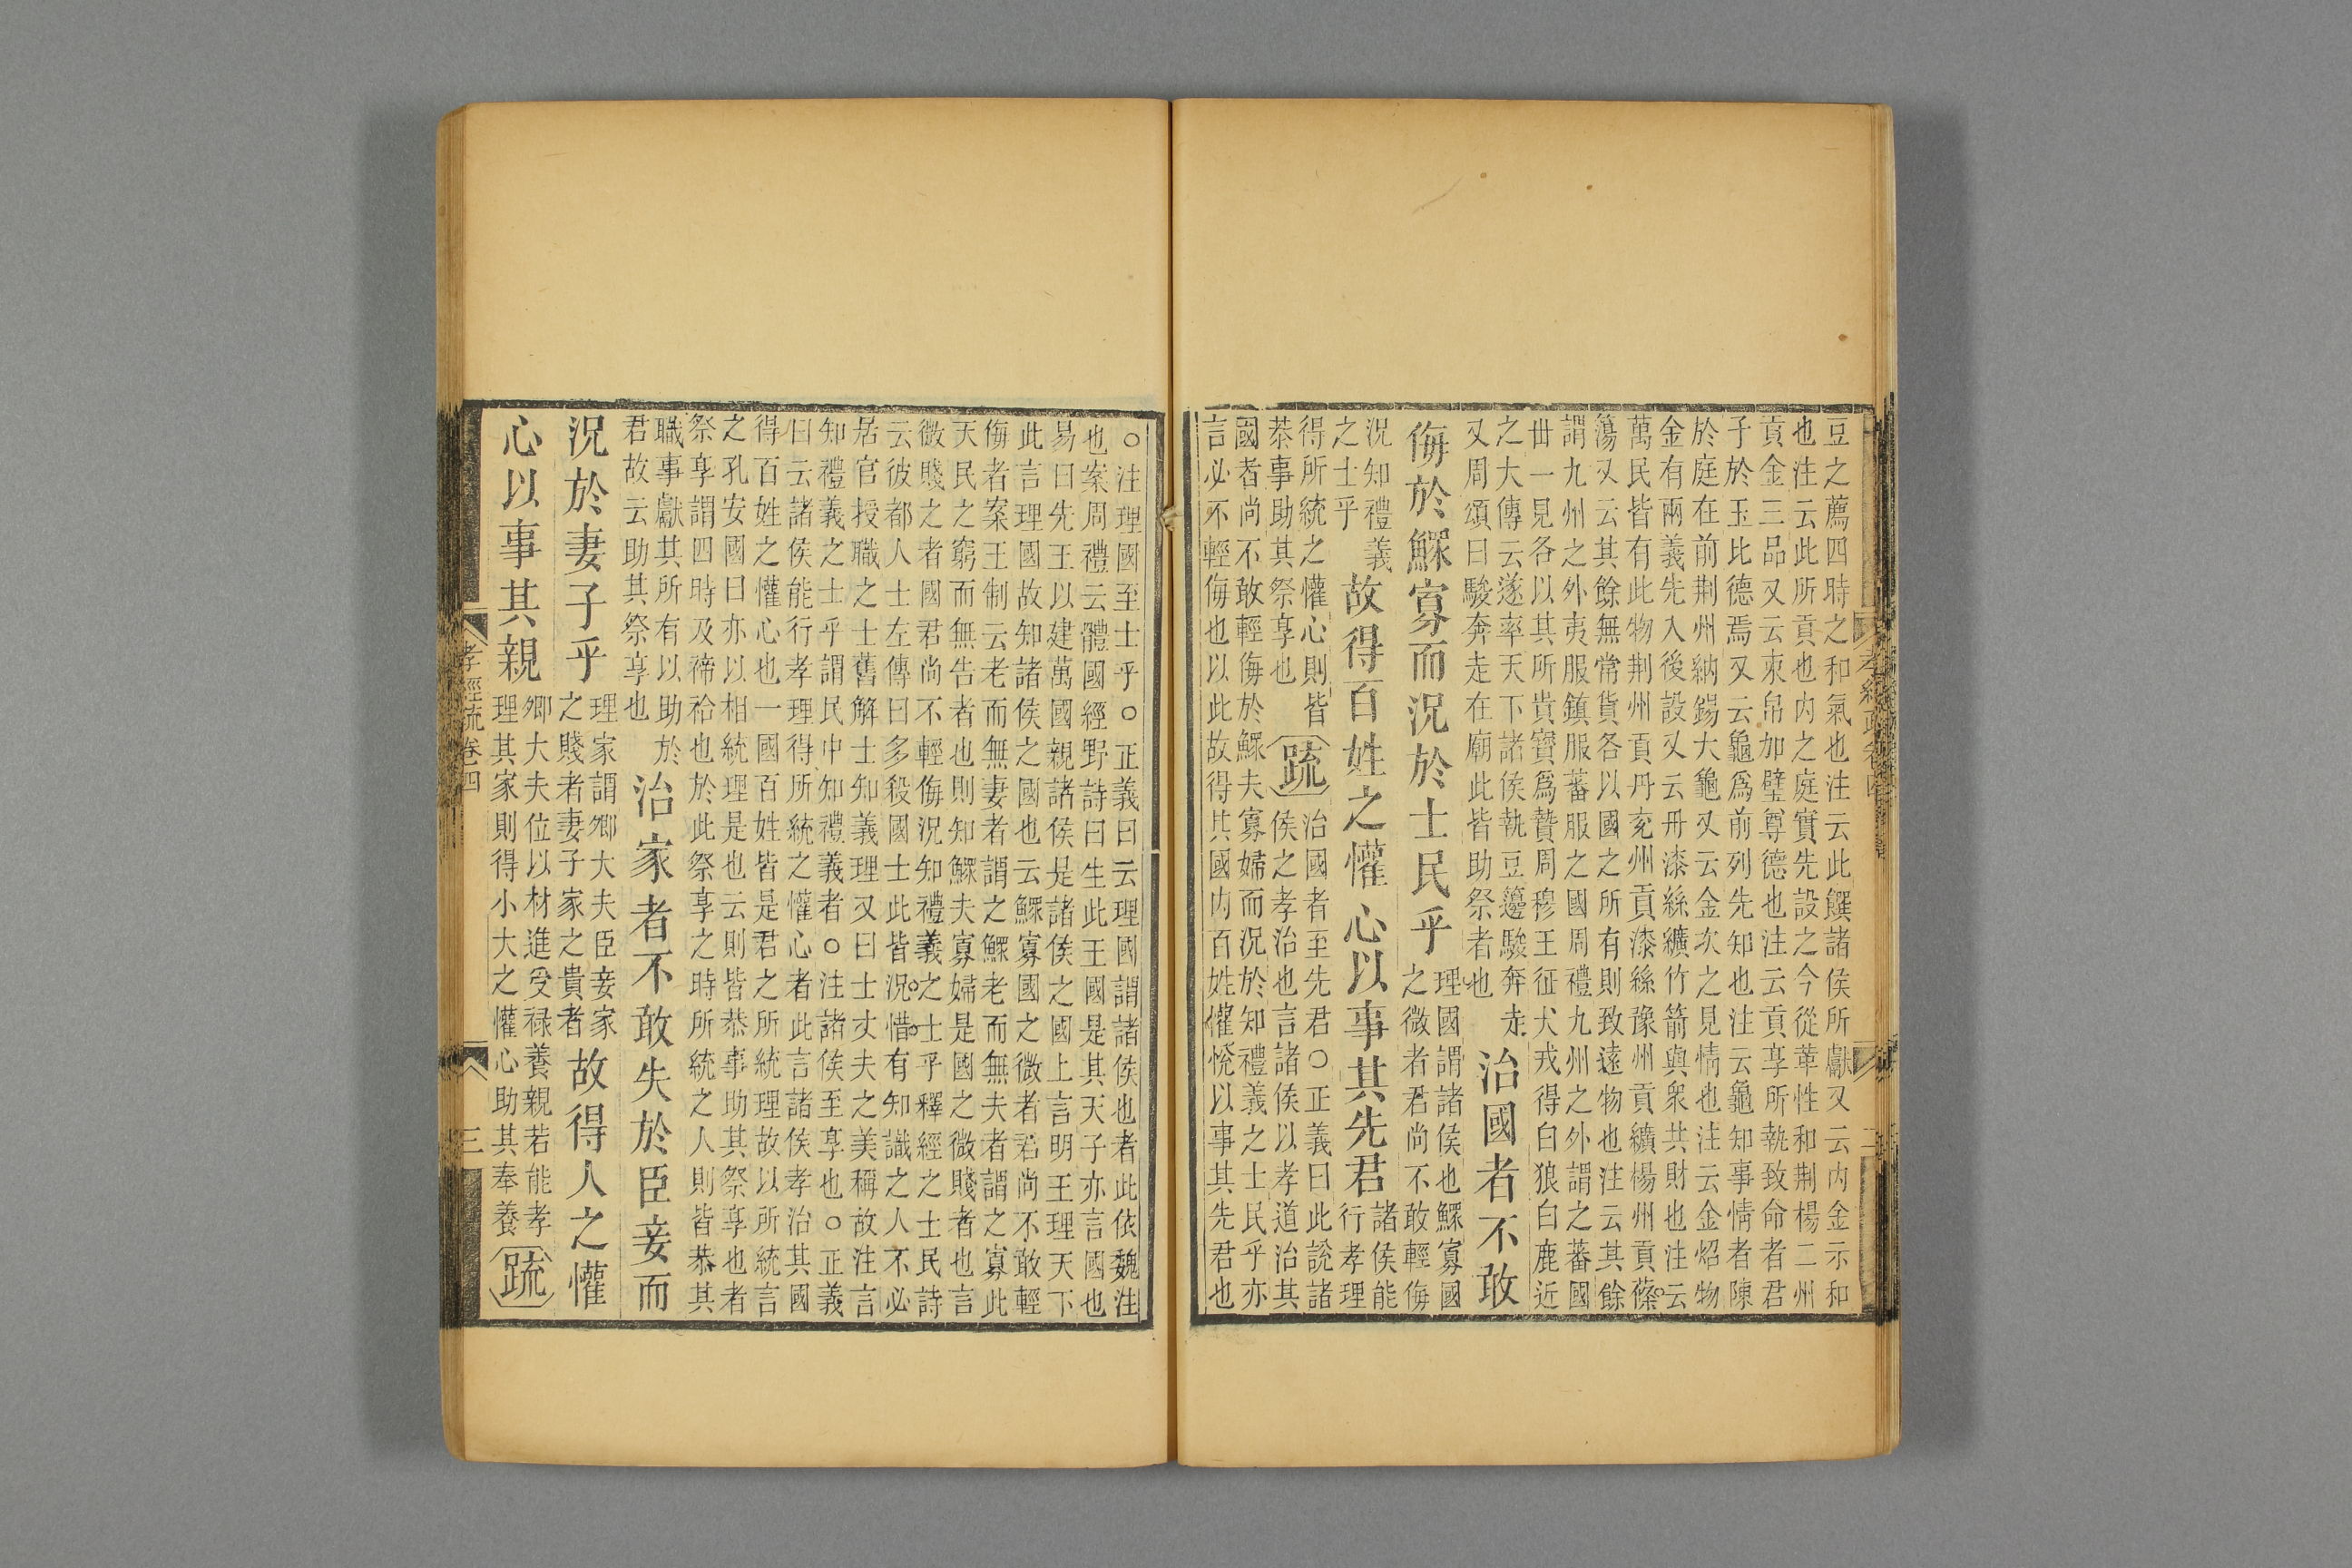 豆之薦四時之和氣也注云此饌諸侯所獻又云內金示和
也注云此所貢也內之庭實先設之今從革性和荆楊二州
貢金三品又云束帛加璧尊德也注云貢享所執致命者君
子於玉比德焉又云龜爲前列先知也注云龜知事情者陳
於庭在前荆州納錫大龜又云金次之見情也注云金炤物
金有兩義先入後設又云丹漆絲纊竹箭與衆共財也注云
萬民皆有此物荆州貢丹兖州貢漆絲豫州貢纊楊州貢蓧
簜又云其餘無常貨各以國之所有則致遠物也注云其餘
謂九州之外夷服鎮服蕃服之國周禮九州之外謂之蕃國
丗一見各以其所貴寳爲贄周穆王征犬戎得白狼白鹿近
之大傳云遂率天下諸侯執豆籩駿奔走
又周頌曰駿奔走在廟此皆助祭者也
治國者不敢
侮於鰥寡而況於士民乎
理國謂諸侯也鰥寡國
之微者君尚不敢輕侮
況知禮義
之士乎
故得百姓之懽心以事其先君
諸侯能
行孝理
得所統之懽心則皆
恭事助其祭享也
疏
治國者至先君○正義曰此說諸
侯之孝治也言諸侯以孝道治其
國者尚不敢輕侮於鰥夫寡婦而況於知禮義之士民乎亦
言必不輕侮也以此故得其國內百姓懽悅以事其先君也
○注理國至士乎○正義曰云理國謂諸侯也者此依魏注
也案周禮云體國經野詩曰生此王國是其天子亦言國也
易曰先王以建萬國親諸侯是諸侯之國上言明王理天下
此言理國故知諸侯之國也云鰥寡國之微者君尚不敢輕
侮者案王制云老而無妻者謂之鰥老而無夫者謂之寡此
天民之窮而無告者也則知鰥夫寡婦是國之微賤者也言
微賤之者國君尚不輕侮況知禮義之士乎釋經之士民詩
云彼都人士左傳曰多殺國士此皆況惜有知識之人不必
居官授職之士舊解士知義理又曰士丈夫之美稱故注言
知禮義之士乎謂民中知禮義者○注諸侯至享也○正義
曰云諸侯能行孝理得所統之懽心者此言諸侯孝治其國
得百姓之懽心也一國百姓皆是君之所統理故以所統言
之孔安國曰亦以相統理是也云則皆恭事助其祭享也者
祭享謂四時及禘祫也於此祭享之時所統之人則皆恭其
職事獻其所有以助於
君故云助其祭享也
治家者不敢失於臣妾而
況於妻子乎
理家謂卿大夫臣妾家
之賤者妻子家之貴者
故得人之懽
心以事其親
卿大夫位以材進受禄養親若能孝
理其家則得小大之懽心助其奉養
疏
孝經疏卷四
三